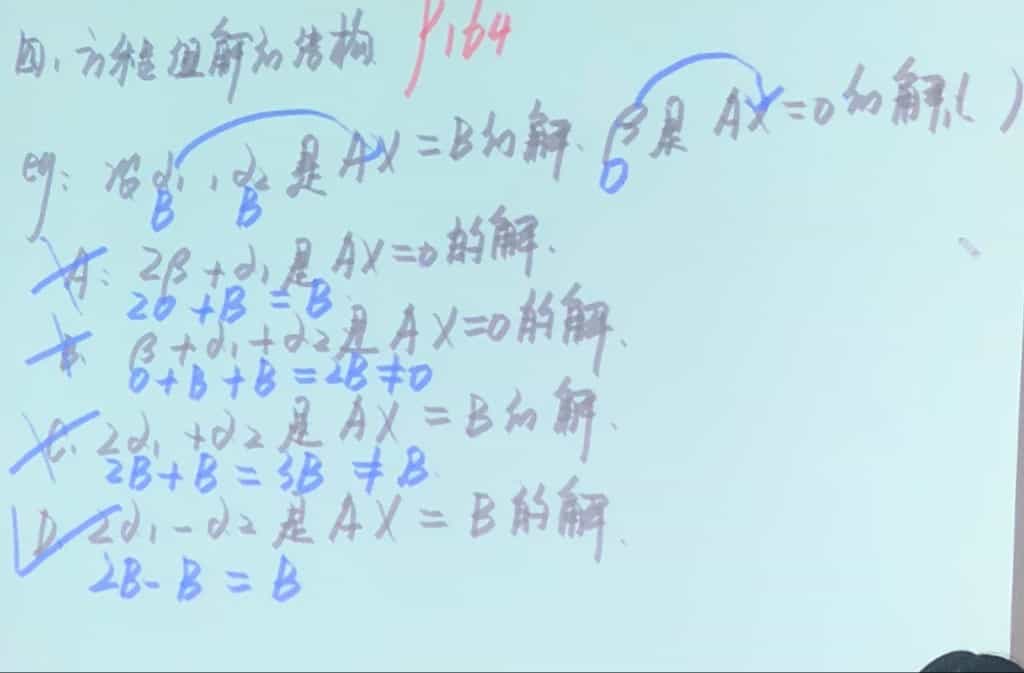 四、方程组解的结构 P164
eg: 设α₁,α₂是AX=B的解、β是AX=0的解,( )
B B 0
A: 2β+α₁是AX=0的解、
20+B=B
B、β+α₁+α₂是AX=0的解、
0+B+B=2B≠0
C、2α₁+α₂是AX=B的解、
2B+B=3B≠B
D、2α₁-α₂是AX=B的解、
2B-B=B